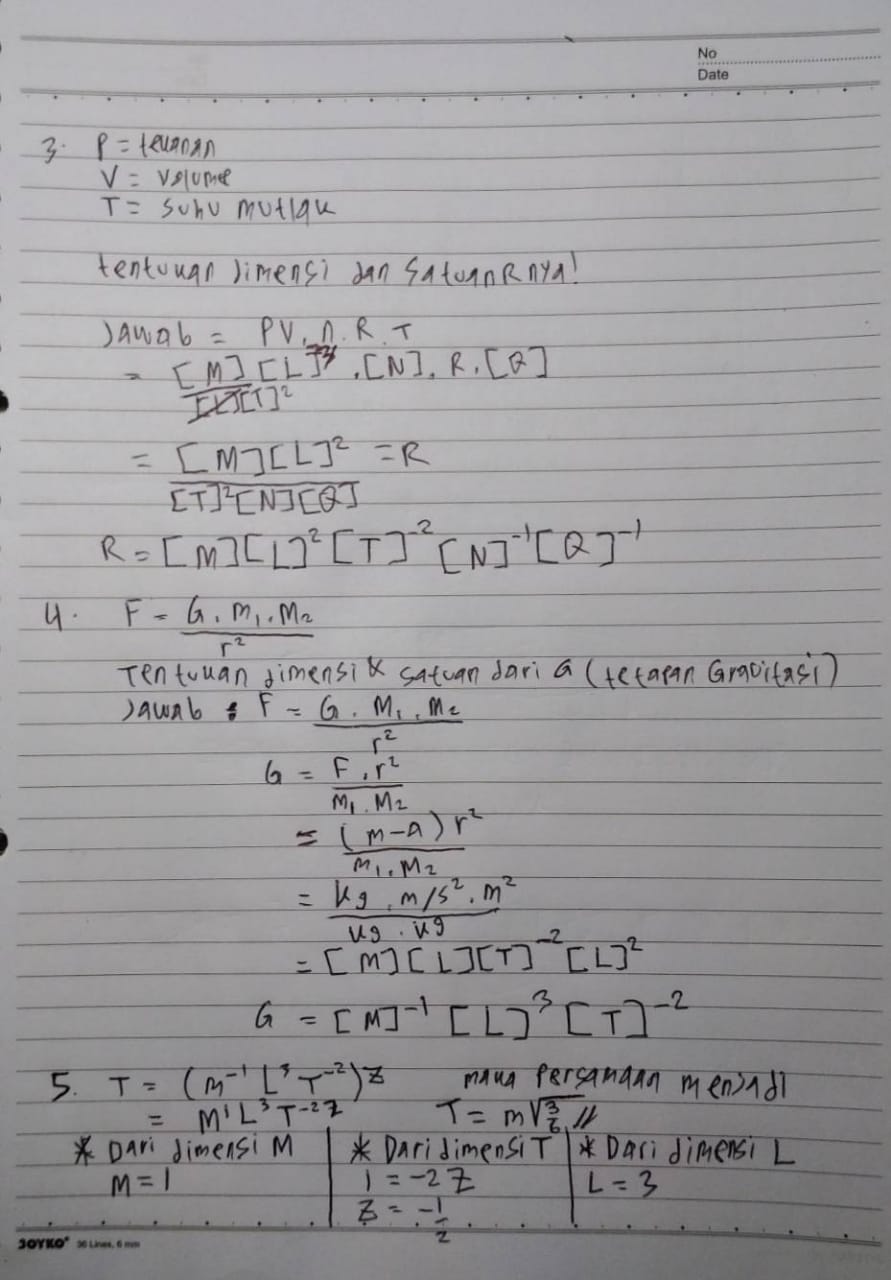 No
Date
3. P = tekanan
V = Volume
T = suhu mutlak
tentukan dimensi dan Satuan R nya!
Jawab = PV. n. R. T
= [M][L]³ . [N]. R. [Q]
[L][T]²
= [M][L]² = R
[T]²[N][Q]
R = [M][L]²[T]⁻²[N]⁻¹[Q]⁻¹
4. F = G. m₁. M₂
r²
Tentukan dimensi & satuan dari G (tetapan Gravitasi)
Jawab : F = G. M₁. M₂
r²
G = F . r²
M₁. M₂
= (m-a) r²
m₁. M₂
= kg . m/s² . m²
kg . kg
= [M][L][T]⁻²[L]²
G = [M]⁻¹ [L]³ [T]⁻²
5. T = (m⁻¹ L³ T⁻²)z maka Persamaan menjadi
= M¹L³T⁻²z T = m√3/G //
* Dari dimensi M * Dari dimensi T * Dari dimensi L
M = 1 1 = -2 Z L = 3
Z = -1/2
JOYKO 36 Lines, 6 mm